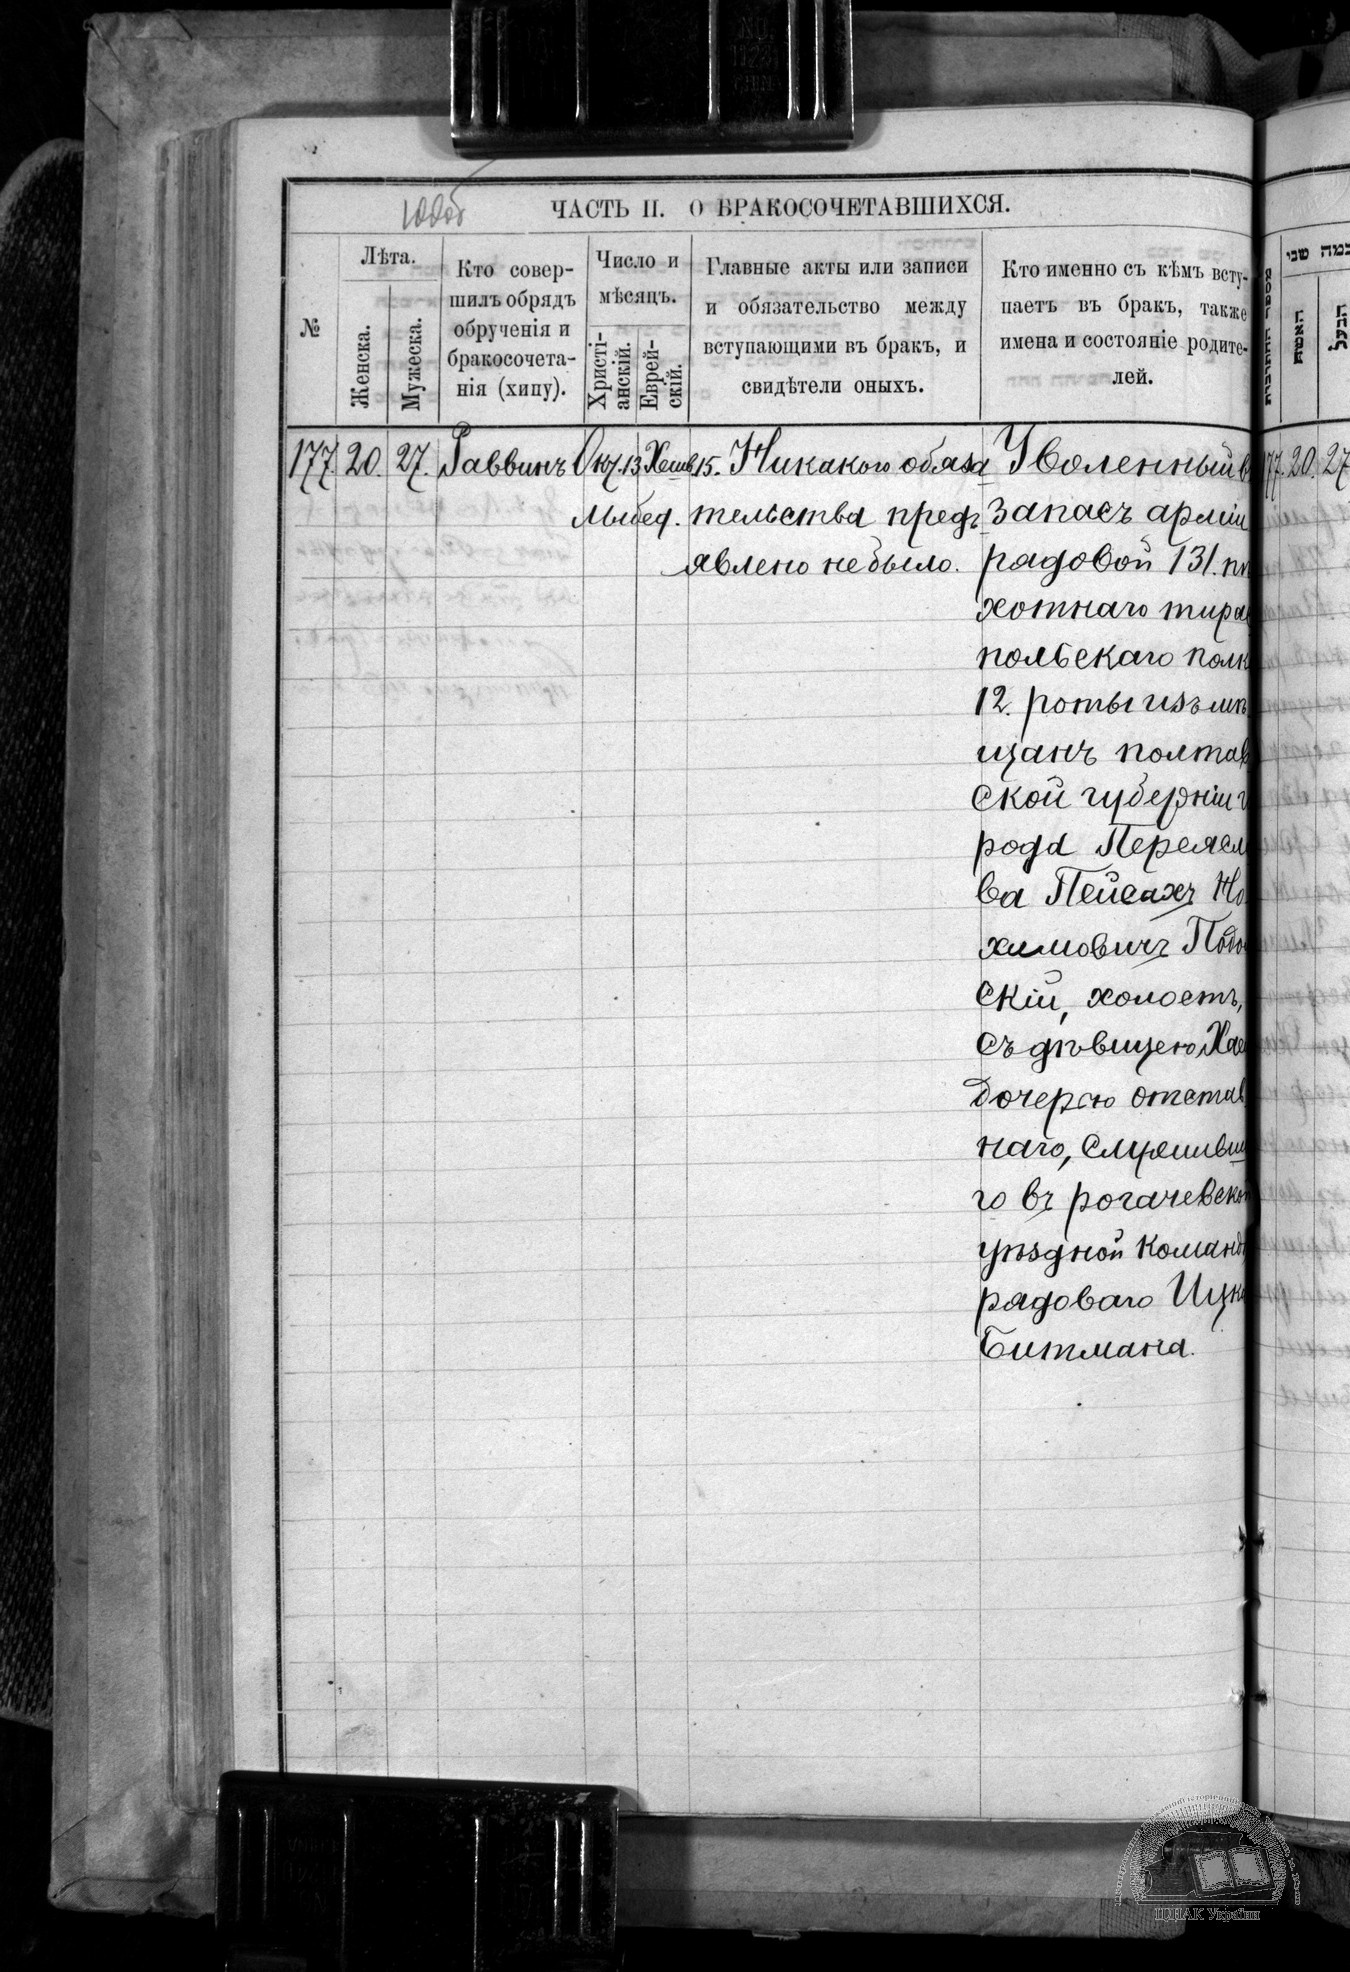 ЧАСТЬ II. О БРАКОСОЧЕТАВШИХСЯ.
№
Лѣта.
Женска.
Мужеска.
Кто совер-
шилъ обрядъ
обрученія и
бракосочета-
нія (хипу).
Число и
мѣсяцъ.
Христі-
анскій.
Еврей-
скій.
Главные акты или записи
и обязательство между
вступающими въ бракъ, и
свидѣтели оныхъ.
Кто именно съ кѣмъ всту-
паетъ въ бракъ, также
имена и состояніе родите-
лей.
177. 20. 27. Раввинъ Окт. 13 Хешв. 15. Никакого обяза Уволенный в
тельства предъ запасъ арміи
явлено не было. рядовой 131. пѣ
хотнаго тирас
польскаго полк
12. роты изъ мѣ
щанъ полтав
ской губерніи г
рода Переясл
ва Пейсахъ Но
химовичъ Подо
скій, холостъ,
съ дѣвицею Хае
дочерью отстав
наго, служивш
го въ рогачевско
уѣздной команд
рядоваго Ицк
Битмана.
האשה
הבעל
77. 20. 27
ЦДІАК України